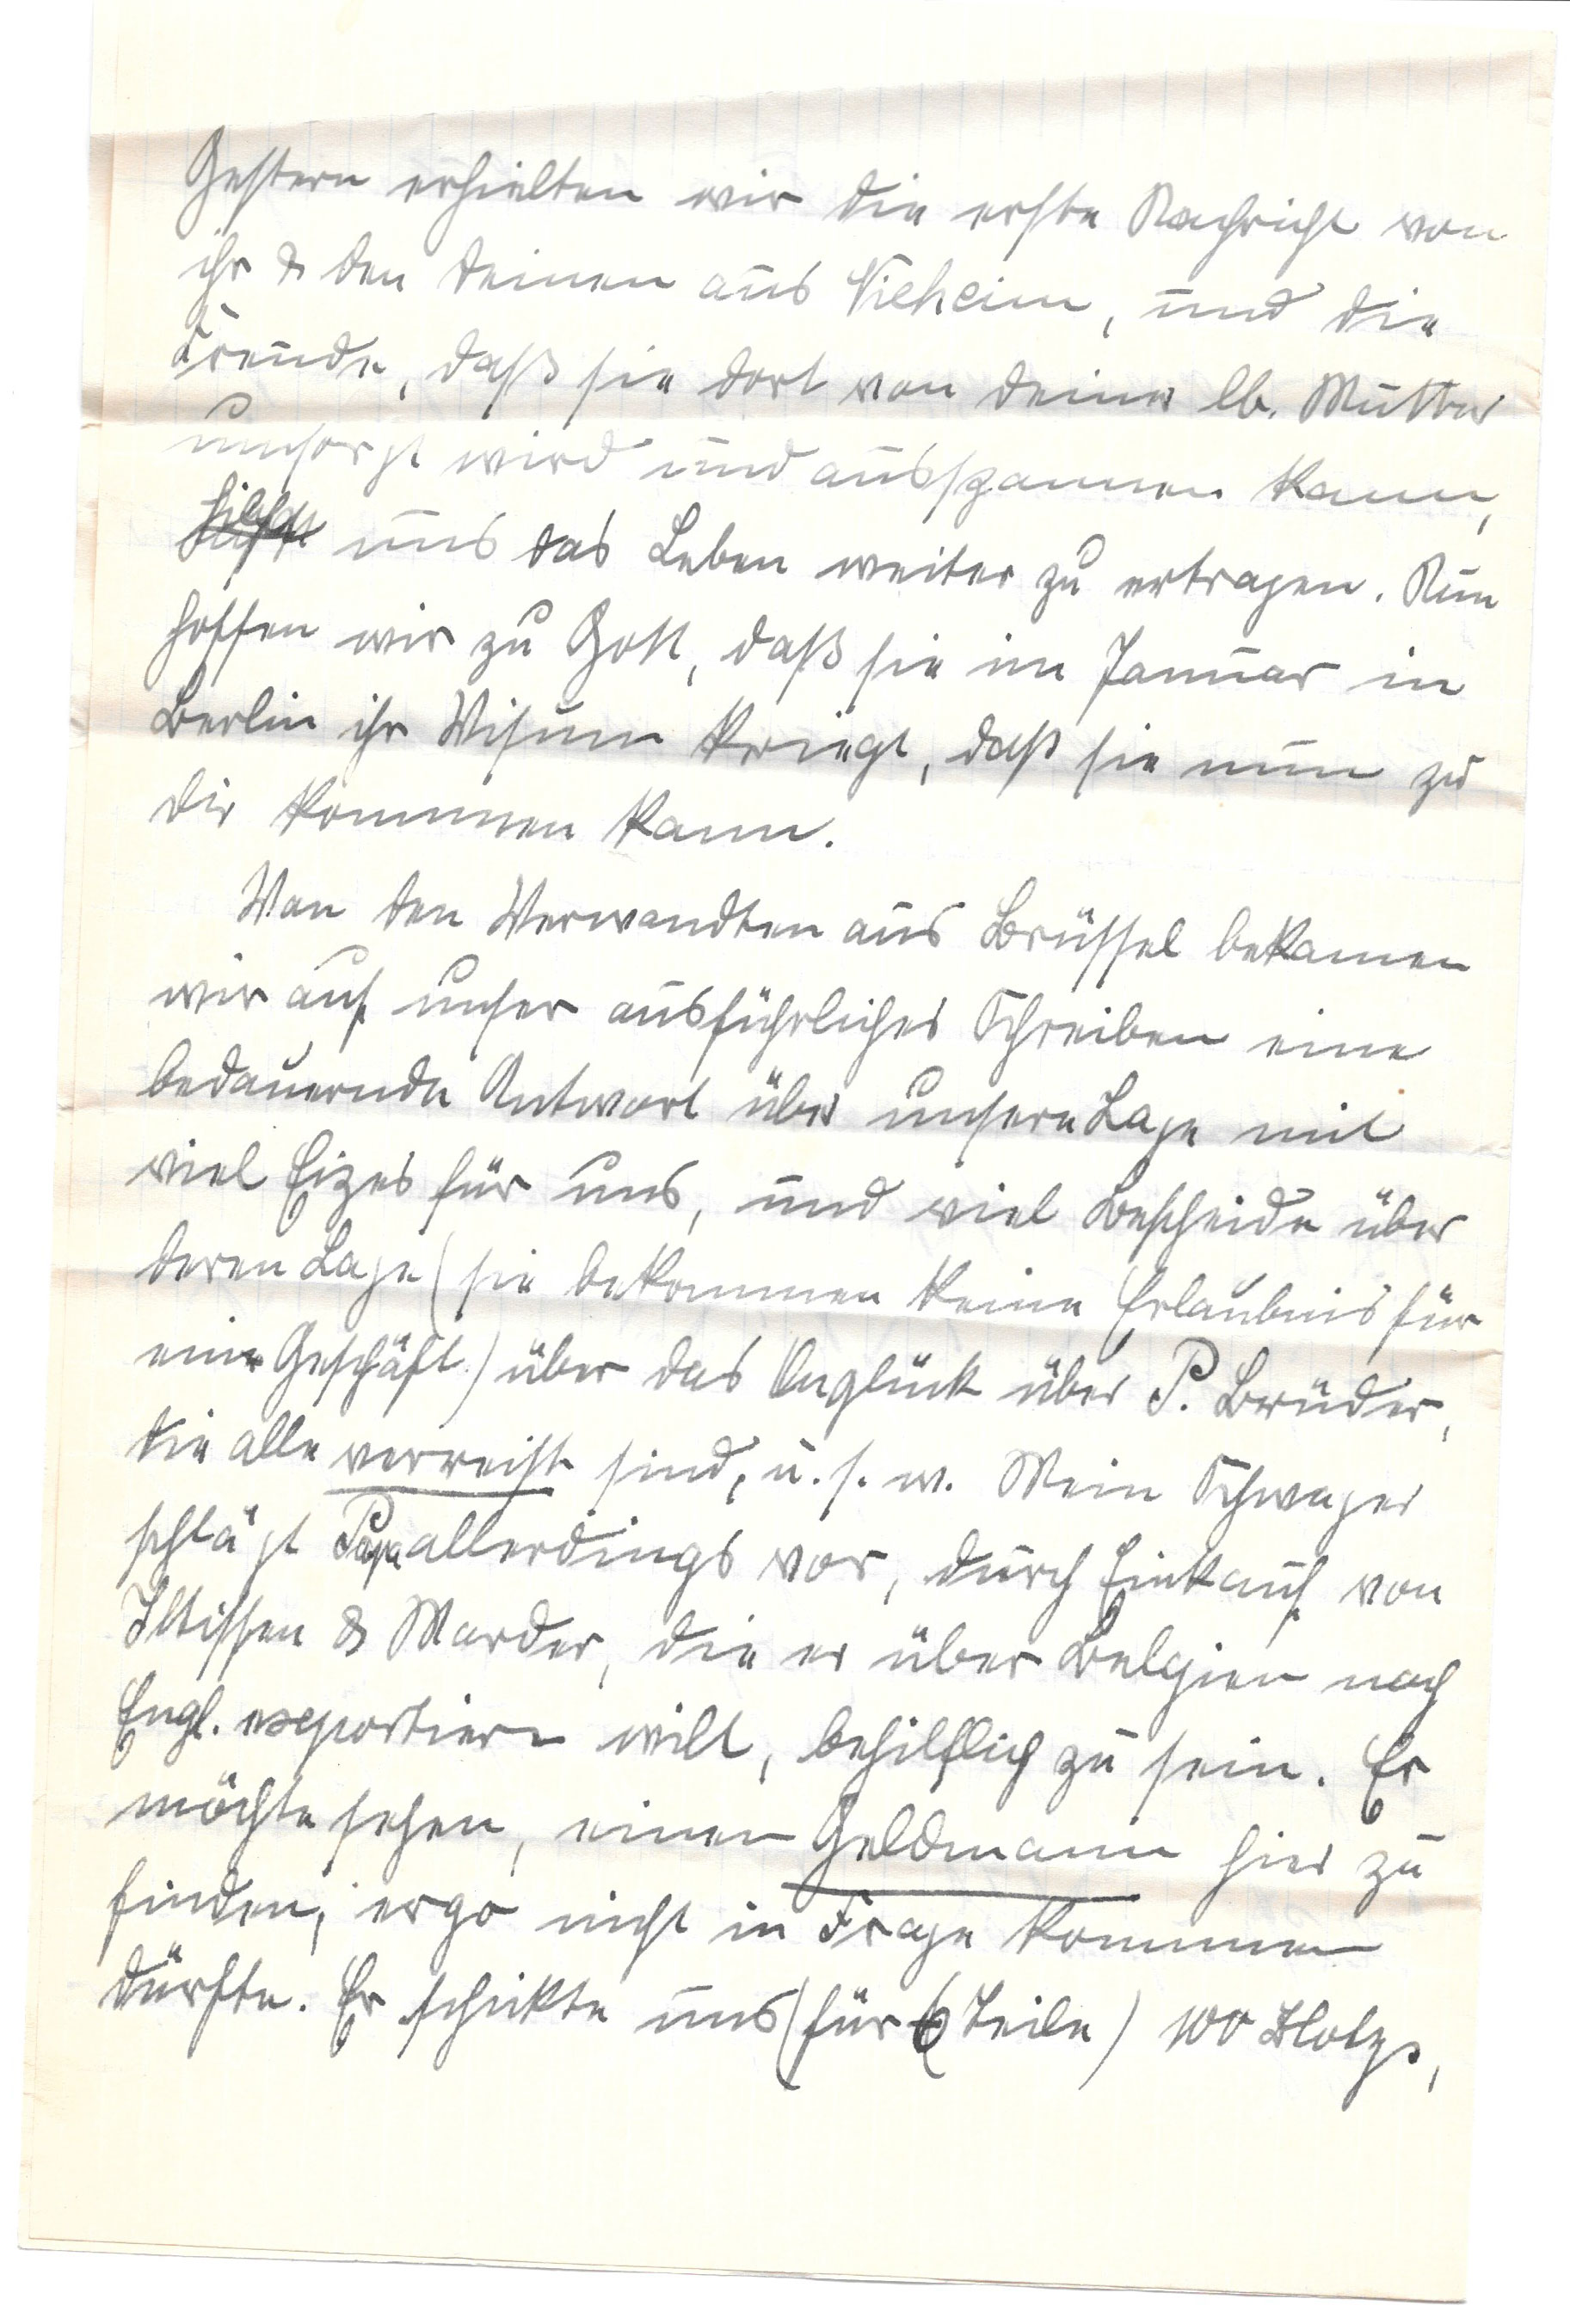 Gestern erhielten wir die erste Nachricht von
ihr & den Deinen aus Nieheim, und die
Freude, daß sie dort von Deiner lb. Mutter
umsorgt wird und ausspannen kann,
hilft uns das Leben weiter zu ertragen. Nun
hoffen wir zu Gott, daß sie im Januar in
Berlin ihr Visum kriegt, daß sie nun zu
Dir kommen kann.
Von den Verwandten aus Brüssel bekamen
wir auf unser ausführliches Schreiben eine
bedauernde Antwort über unsere Lage mit
viel Eizes für uns, und viel Bescheide über
deren Lage (sie bekommen keine Erlaubnis für
ein Geschäft.) über das Unglück über P. Brüder,
die alle verreist sind, u. s. w. Mein Schwager
schlägt Papa allerdings vor, durch Einkauf von
Iltissen & Marder, die er über Belgien nach
Engl. exportieren will, behilflich zu sein. Er
möchte sehen, einen Geldmann hier zu
finden, ergo nicht in Frage kommen
dürfte. Er schickte uns (für 6 Teile) 100 Zlotys,